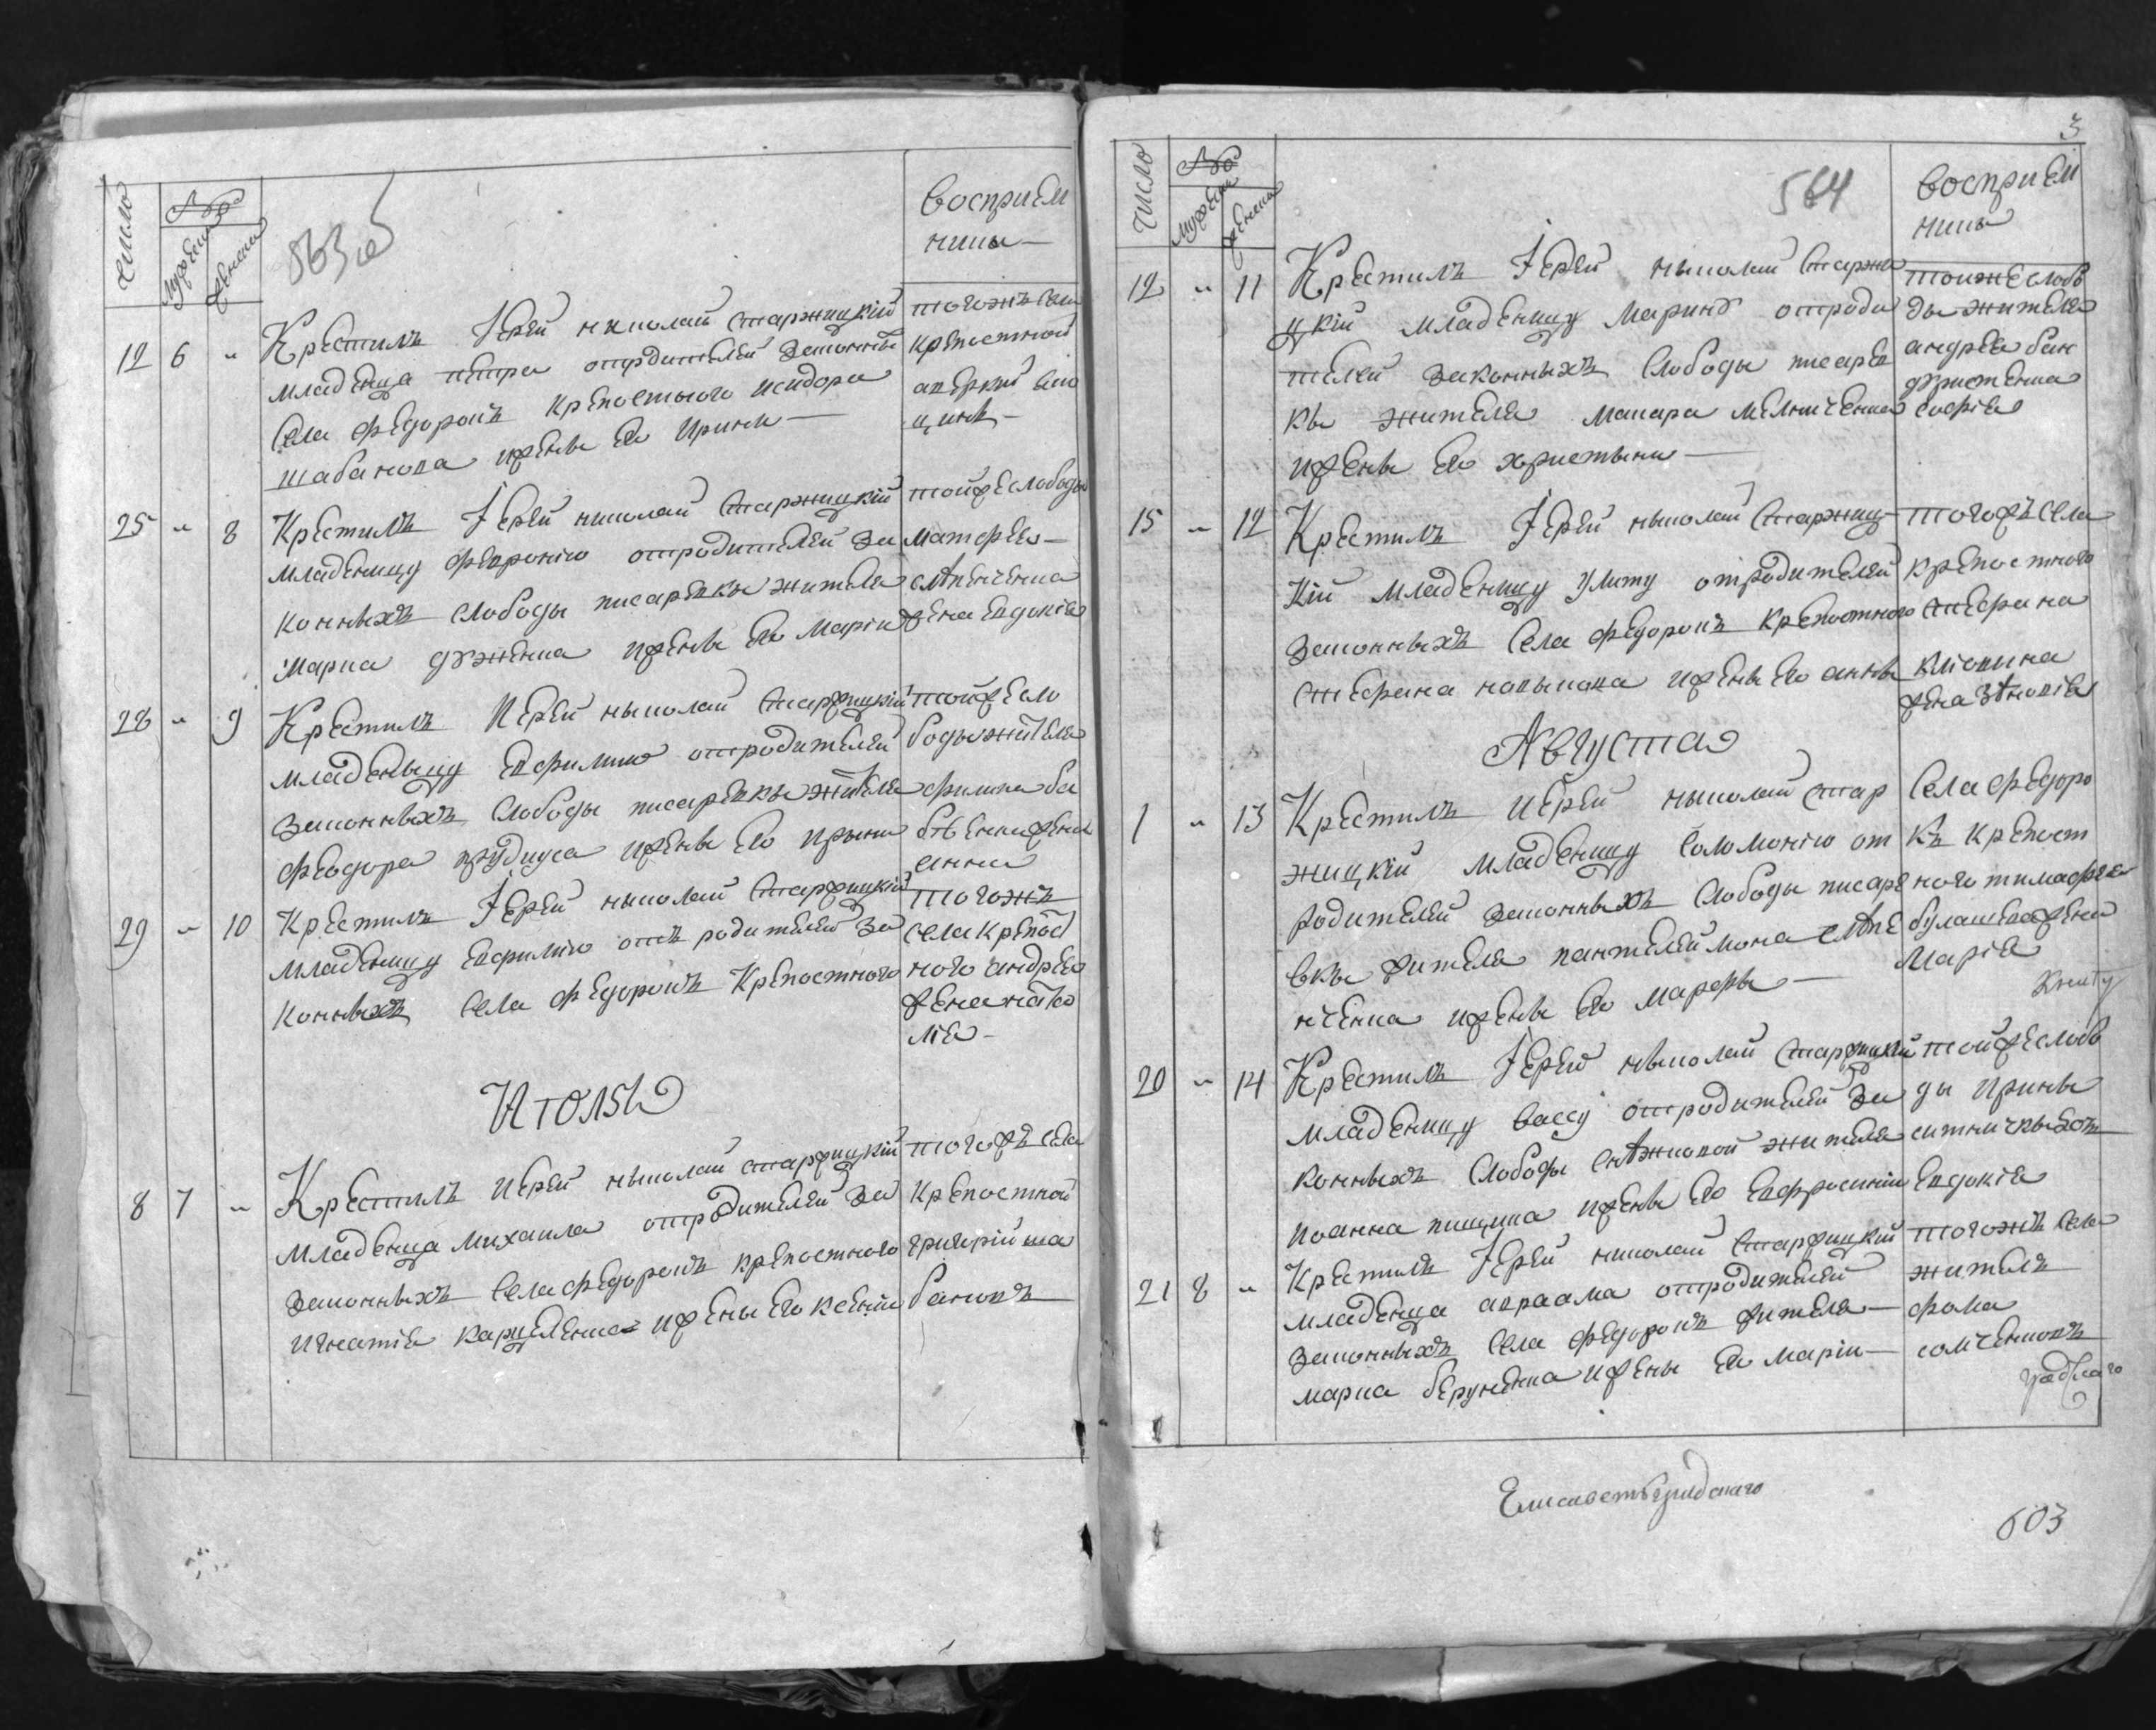 число
№
мужеска
женска
563 об
восприем
ники
12 6 "
Крестилъ Іерей николай Старжицкій
младенца петра отродителей законнѣ
села федоровъ крепостного исидора
шабанова ижены его Ирини
тогожъ села
крепостной
аверкий
25 " 8
Крестилъ Іерей николай Старжицкій
младеницу февронію отродителей за
конныхъ слободы писаревки жителя
марка ижены его Маріи
тойжеслободы
матфея
слѣпченка
жена евдокія
28 " 9
Крестилъ Иерей николай Старжицкій
младеницу евфимию отродителей
законныхъ слободы писаревки жителя
феодора ижены его ирини
тойжесло
боды жителя
филипа ба
жена
анна
29 " 10
Крестилъ Іерей николай Старжицкій
младеницу евфимію отъ родителей за
конныхъ села федоровъ крепостного
тогожъ
села крепост
ного андрея
жена ната
лія
Июля
8 7 "
Крестилъ иерей николай старжицкій
младенца михаила отродителей за
законныхъ села федоровъ крепостного
игнатія ижены его ксении
тогожъ села
крепостной
григорій ша
бановъ
3
число
№
мужеска
женска
564
восприем
ники
12 " 11
Крестилъ Іерей николай Старжи
цкій младеницу Марину отроди
телей законныхъ слободы писарев
ки жителя макара мельниченка
ижены его христины
тоижеслобо
ды жителя
андрея бан
софія
15 " 12
Крестилъ Іерей николай Старжиц
кій младеницу Улиту отродителей
законныхъ села федоровъ крепостного
стефана новикова ижены его анны
тогожъ села
крепостного
стефана
жена зѣновія
Августа
1 " 13
Крестилъ иерей николай стар
жицкій младеницу соломонію от
родителей законныхъ слободы писаре
вки жителя пантелеймона слѣпе
нченка ижены его марфы
села федоро
въ крепост
ного тимафея
булашева жена
марія
Книгу
20 " 14
Крестилъ Іерей николай Старжицкий
младеницу вассу отродителей за
конныхъ слободы снѣжковой жителя
иоанна пищика ижены его евфросинии
тойжеслобо
ды ирины
евдокія
21 8 "
Крестилъ Іерей николай Старжицкій
младенца авраама отродителей
законныхъ села федоровъ жителя
марка ижены его маріи
тогожъ села
житель
фома
Елисаветъградскаго
603